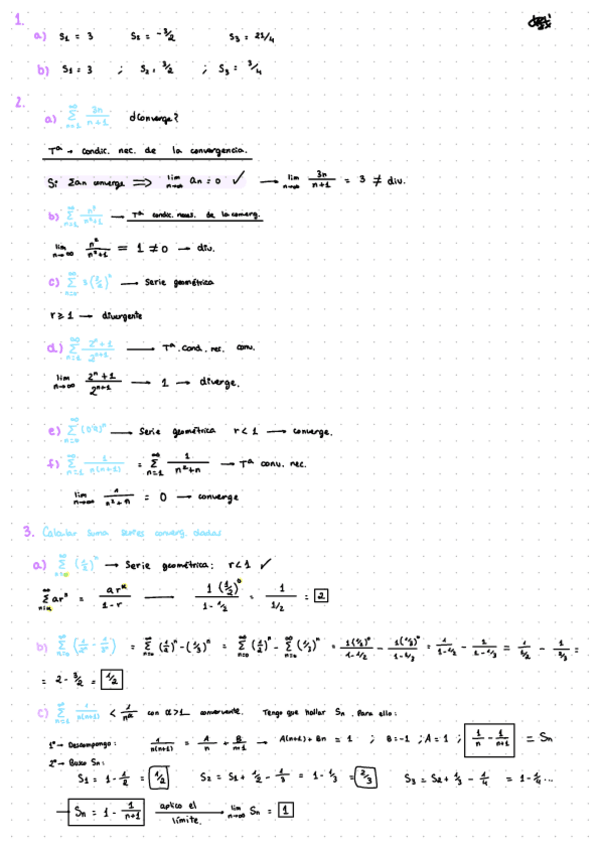 1.
a) S₁ = 3 S₂ = -3/2 S₃ = 21/4
b) S₁ = 3 ; S₂ = 3/2 ; S₃ = 3/4
2.
a) ∑_{n=1}^{∞} 3n/(n+1) ¿Converge?
Tª → condic. nec. de la convergencia.
Si ∑an converge ⟹ lim_{n→∞} an = 0 ✓ → lim_{n→∞} 3n/(n+1) = 3 ≠ div.
b) ∑_{n=1}^{∞} n²/(n²+1) → Tª condic. neces. de la converg.
lim_{n→∞} n²/(n²+1) = 1 ≠ 0 → div.
c) → Serie geométrica
r ≥ 1 → divergente
d) ∑_{n=1}^{∞} (2ⁿ+1)/2ⁿ⁺¹ → Tª. Cond. nec. conv.
lim_{n→∞} (2ⁿ+1)/2ⁿ⁺¹ → 1 → diverge.
e) → Serie geométrica r < 1 → converge.
f) ∑_{n=1}^{∞} 1/(n(n+1)) = ∑_{n=1}^{∞} 1/(n²+n) → Tª conv. nec.
lim_{n→∞} 1/(n²+n) = 0 → converge
3. Calcular suma series converg. dadas
a) ∑ (1/2)ⁿ → Serie geométrica: r < 1 ✓
∑ arⁿ = arᵏ/(1-r) → 1(1/2)⁰/(1-1/2) = 1/(1/2) = 2
b) ∑_{n=0}^{∞} (1/2ⁿ - 1/3ⁿ) = ∑_{n=0}^{∞} (1/2)ⁿ - (1/3)ⁿ = ∑_{n=0}^{∞} (1/2)ⁿ - ∑_{n=0}^{∞} (1/3)ⁿ = 1(1/2)⁰/(1-1/2) - 1(1/3)⁰/(1-1/3) = 1/(1-1/2) - 1/(1-1/3) = 1/(1/2) - 1/(2/3) =
= 2 - 3/2 = 1/2
c) ∑_{n=1}^{∞} 1/(n(n+1)) < 1/n^α con α>1 convergente. Tengo que hallar Sn. Para ello:
1º → Descompongo: 1/(n(n+1)) = A/n + B/(n+1) → A(n+1) + Bn = 1 ; B=-1 ; A=1 ; 1/n - 1/(n+1) = Sn
2º → Busco Sn:
S₁ = 1 - 1/2 = 1/2 S₂ = S₁ + 1/2 - 1/3 = 1 - 1/3 = 2/3 S₃ = S₂ + 1/3 - 1/4 = 1 - 1/4 ...
→ Sn = 1 - 1/(n+1) aplico el límite. → lim_{n→∞} Sn = 1